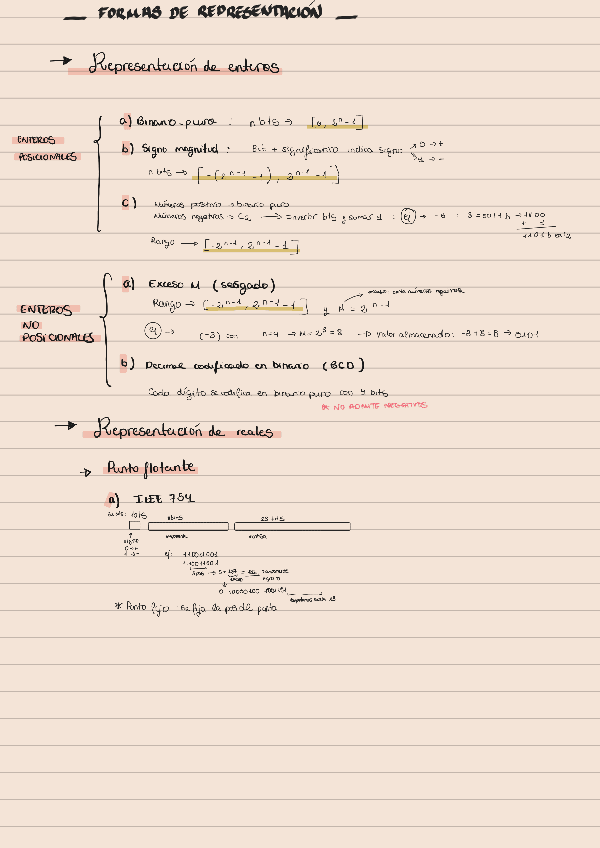 FORMAS DE REPRESENTACIÓN
→ Representación de enteros
ENTEROS POSICIONALES
a) Binario puro : n bits → [0, 2^n - 1]
b) Signo magnitud : Bit + significativo indica signo 0 → + 1 → -
n bits → [-(2^n-1 - 1), 2^n-1 - 1]
c) Números positivos → binario puro
Números negativos → C2 → invertir bits y sumar 1 : ej →
Rango → [-2^n-1, 2^n-1 - 1]
ENTEROS NO POSICIONALES
a) Exceso M (sesgado)
Rango → [-2^n-1, 2^n-1 - 1] y M = 2^n-1
ej → (-3) n=4 → M = 2^3 = 8 → valor almacenado: -3+8=5 → 0101
b) Decimal codificado en binario (BCD)
Cada dígito se codifica en binario puro con 4 bits
NO ADMITE NEGATIVOS
→ Representación de reales
→ Punto flotante
a) IEEE 754
8bits 23 bits
signo
ej: 11001.001
* Punto fijo se fija la pos de punto